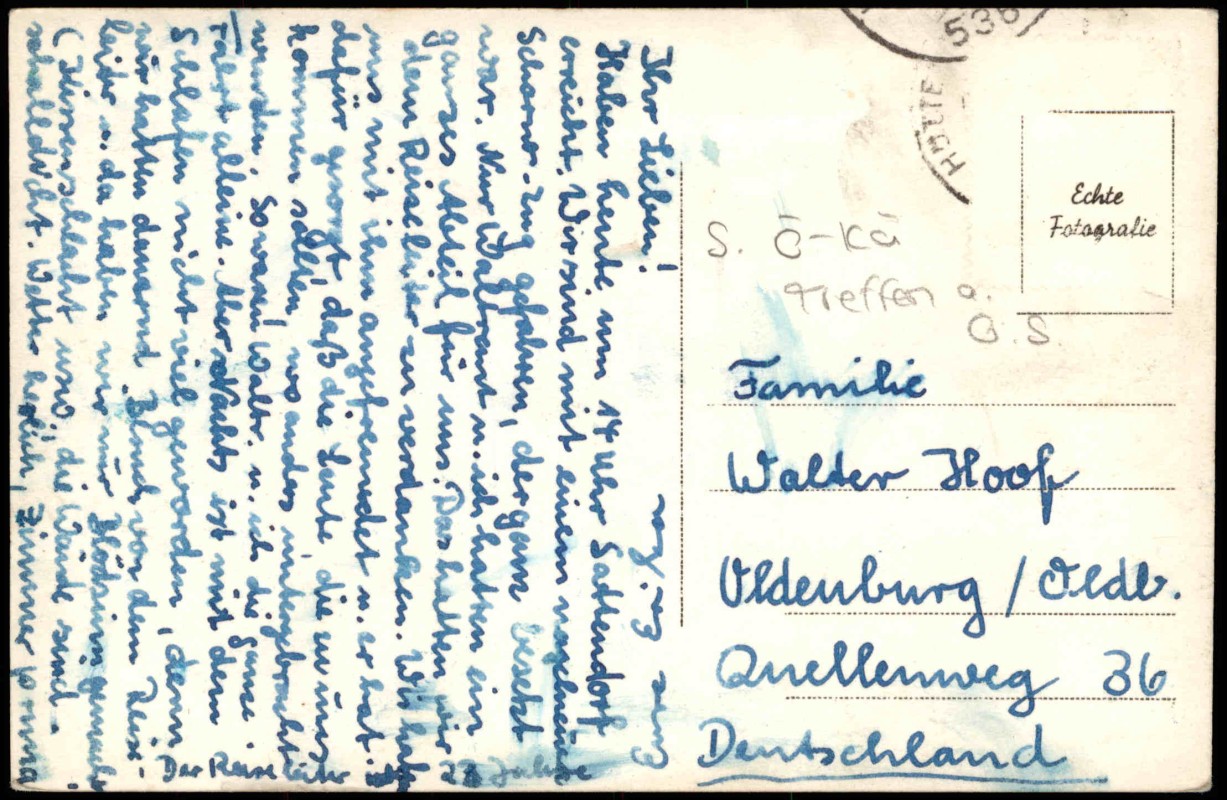 Ihr Lieben!
Haben heute um 14 Uhr Sattendorf
erreicht. Wir sind mit einem
Scharnow-Zug gefahren, der ganz besetzt
war. Nur Waltraut u. ich hatten ein
ganzes Abteil für uns. Das hatten wir
dem Reiseleiter zu verdanken. Wir hab
uns mit ihm angefreundet u. er hat
dafür gesorgt, daß die Leute, die zu uns
kommen sollten, wo anders untergebracht
wurden. So waren Waltr. u. ich die ganze
Fahrt alleine. Aber Nachts ist mit dem
Schlafen nicht viel geworden, denn
wir hatten dauernd Besuch von dem Reise-
leiter u. da haben wir nur Blödsinn gemacht
(Kissenschlacht usw, die Wände sind
schalldicht. Wetter herrlich, Zimmer
Der Reiseleiter 22 Jahre
536
HÜTTE
Echte
Fotografie
S. Ö-Kä
Treffen a.
O.S
Familie
Walter Hoof
Oldenburg / Oldb.
Quellenweg 36
Deutschland